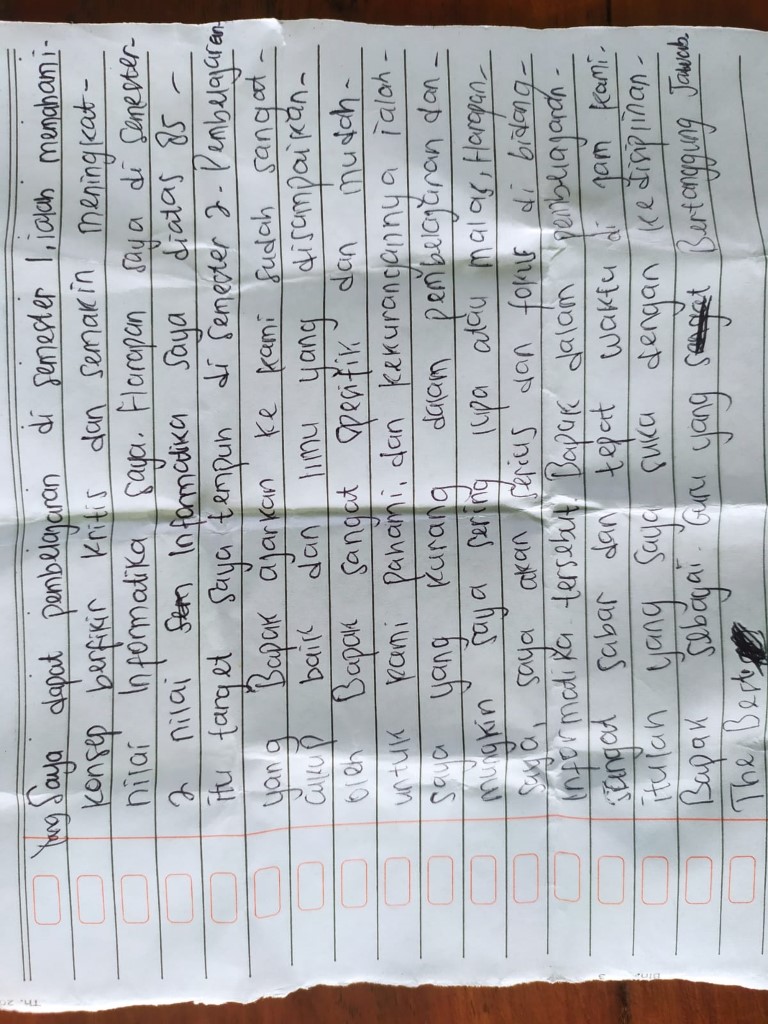 Yang Saya dapat pembelajaran di semester 1, ialah memahami-
konsep berfikir kritis dan semakin meningkat-
nilai Informatika saya. Harapan saya di semester-
2 nilai Informatika saya diatas 85 -
itu target saya tempuh di semester 2. Pembelajaran
yang Bapak ajarkan ke kami sudah sangat-
cukup baik dan ilmu yang disampaikan-
oleh Bapak sangat spesifik dan mudah-
untuk kami pahami. dan kekurangannya ialah-
saya yang kurang dalam pembelajaran dan-
mungkin saya sering lupa atau malas, Harapan-
saya, saya akan serius dan fokus di bidang-
informatika tersebut. Bapak dalam pembelajaran-
sangat sabar dan tepat waktu di jam kami.
itulah yang saya suka dengan kedisiplinan-
Bapak sebagai Guru yang Bertanggung Jawab.
The Best